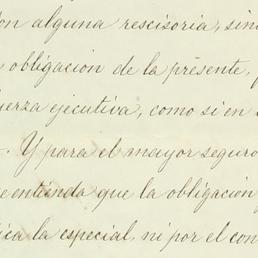 ón alguna rescisoria, sin
obligacion de la présente,
uerza ejecutiva, como si en
. Y para el mayor seguro
e entienda que la obligación
ica la especial, ni por el con